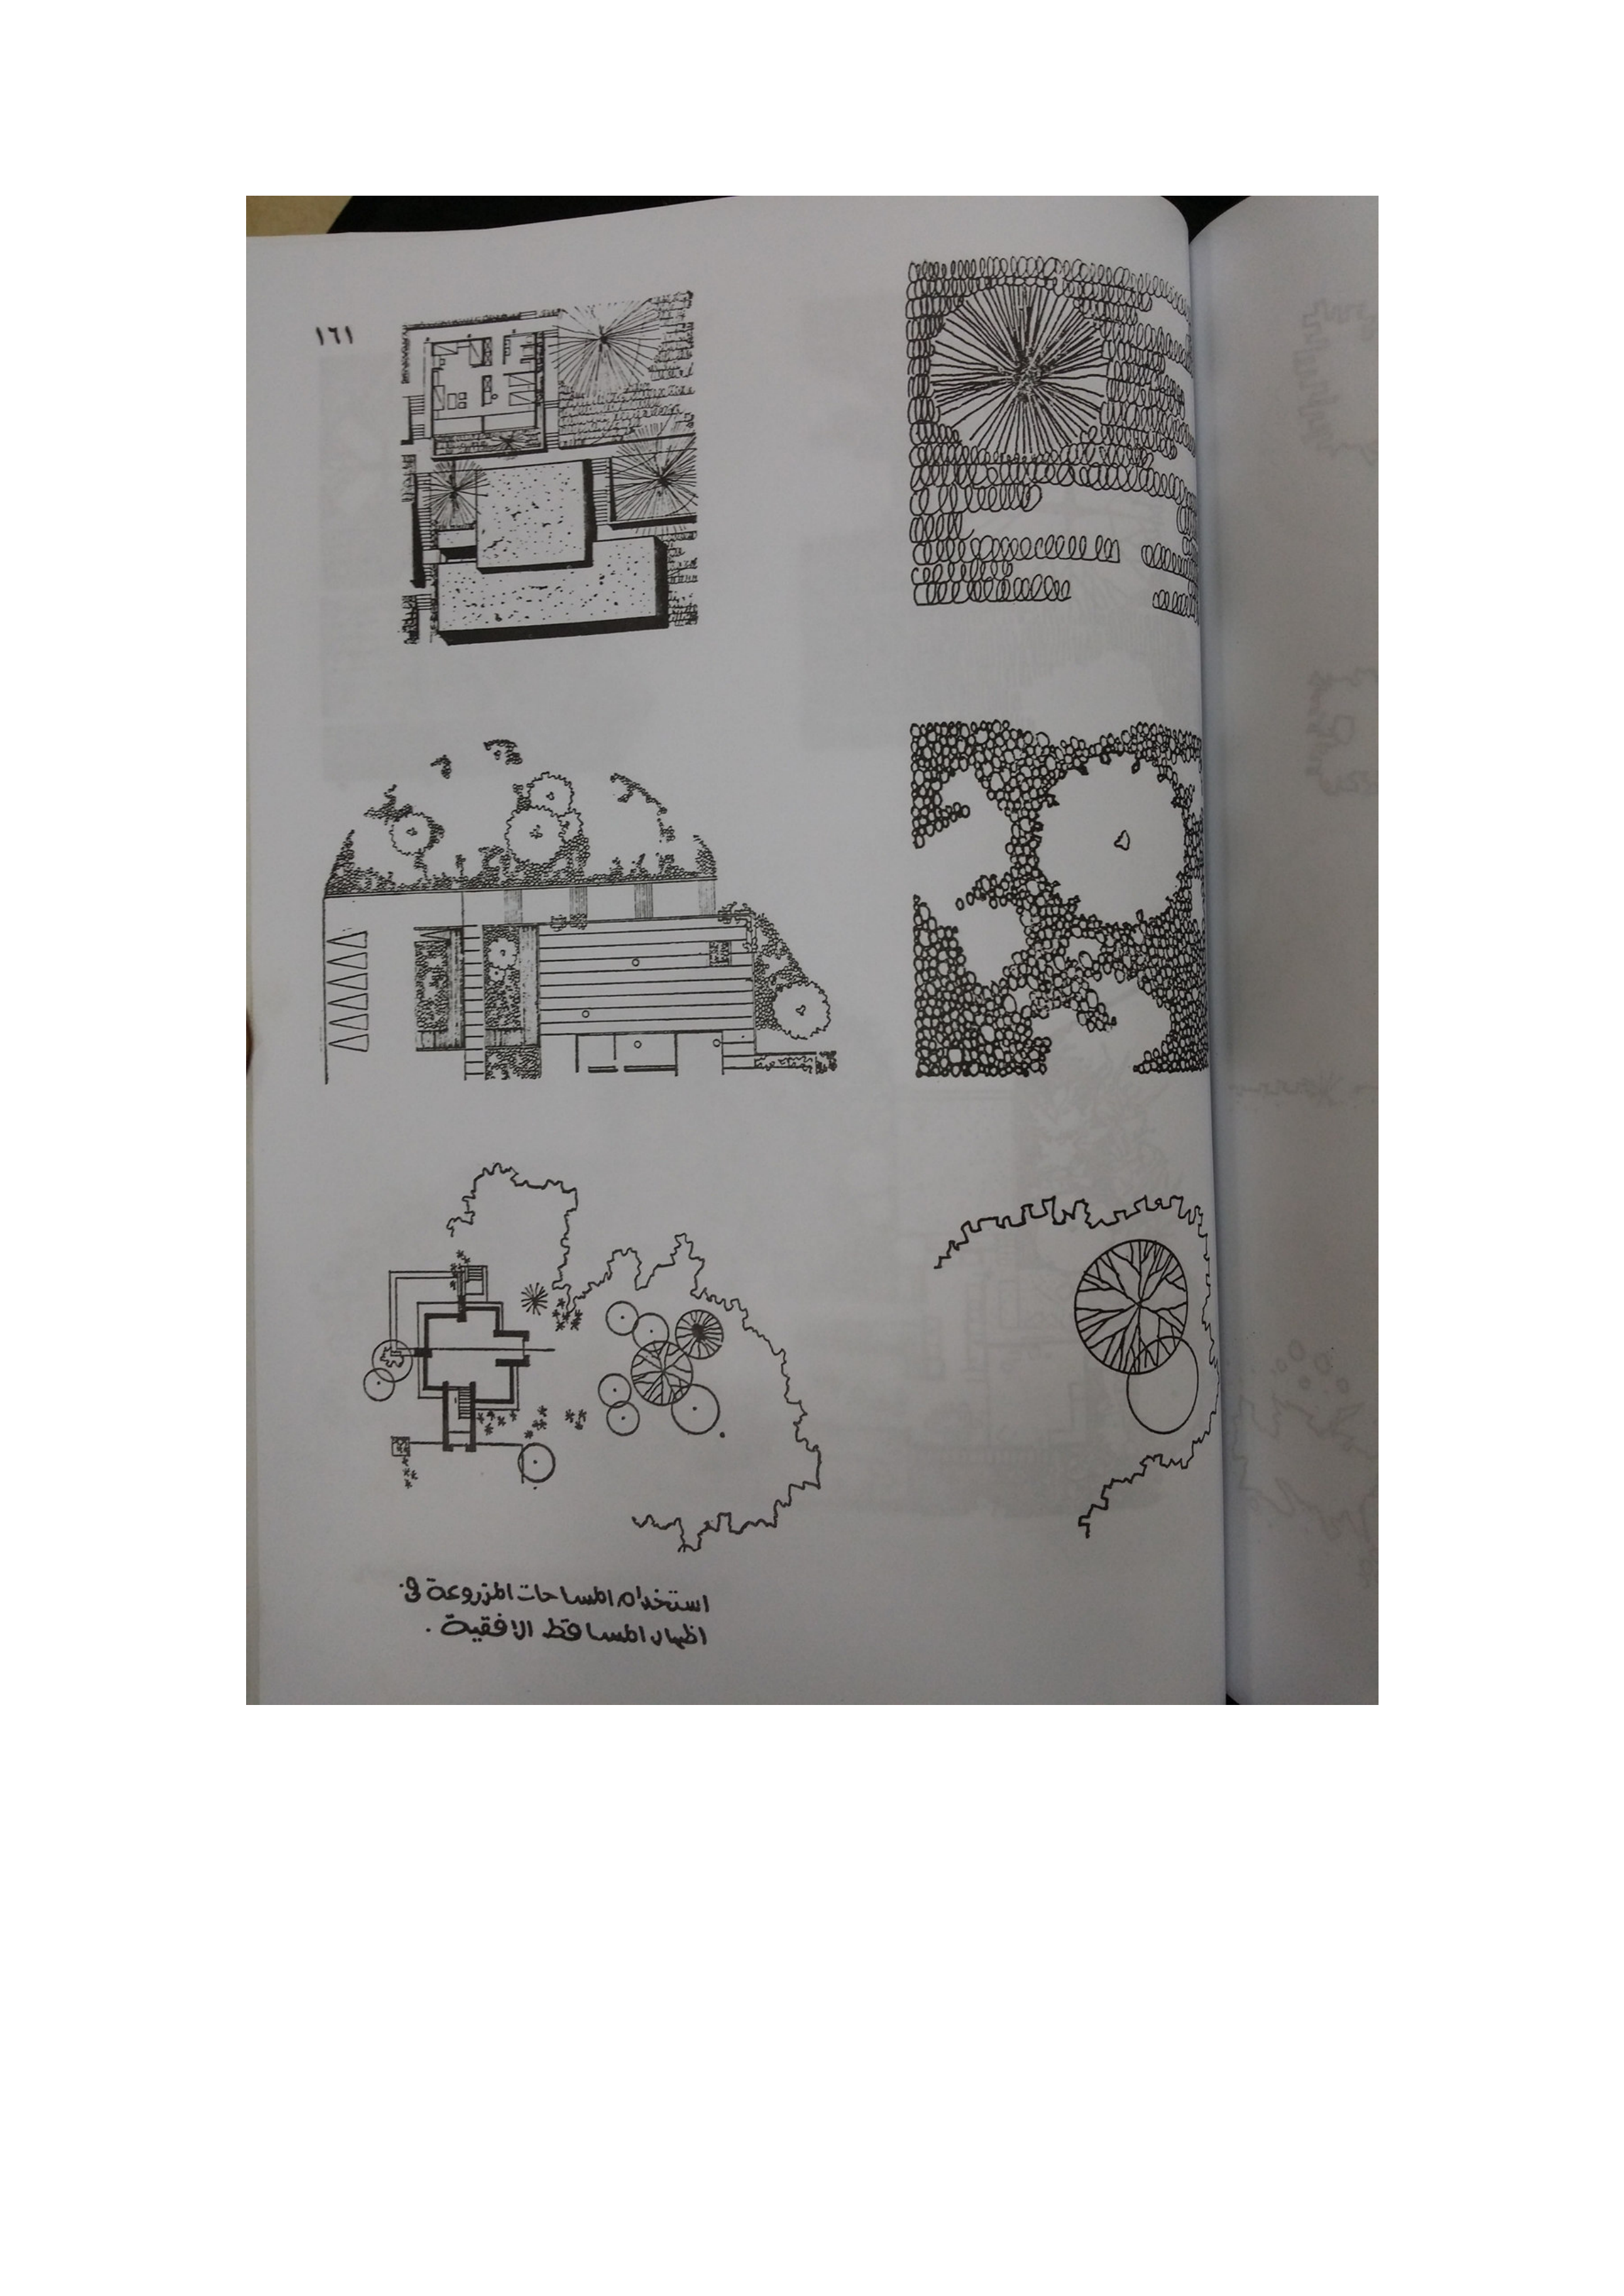 ١٦١
استخدام المساحات المزروعة فى
اظهار المساقط الافقية .